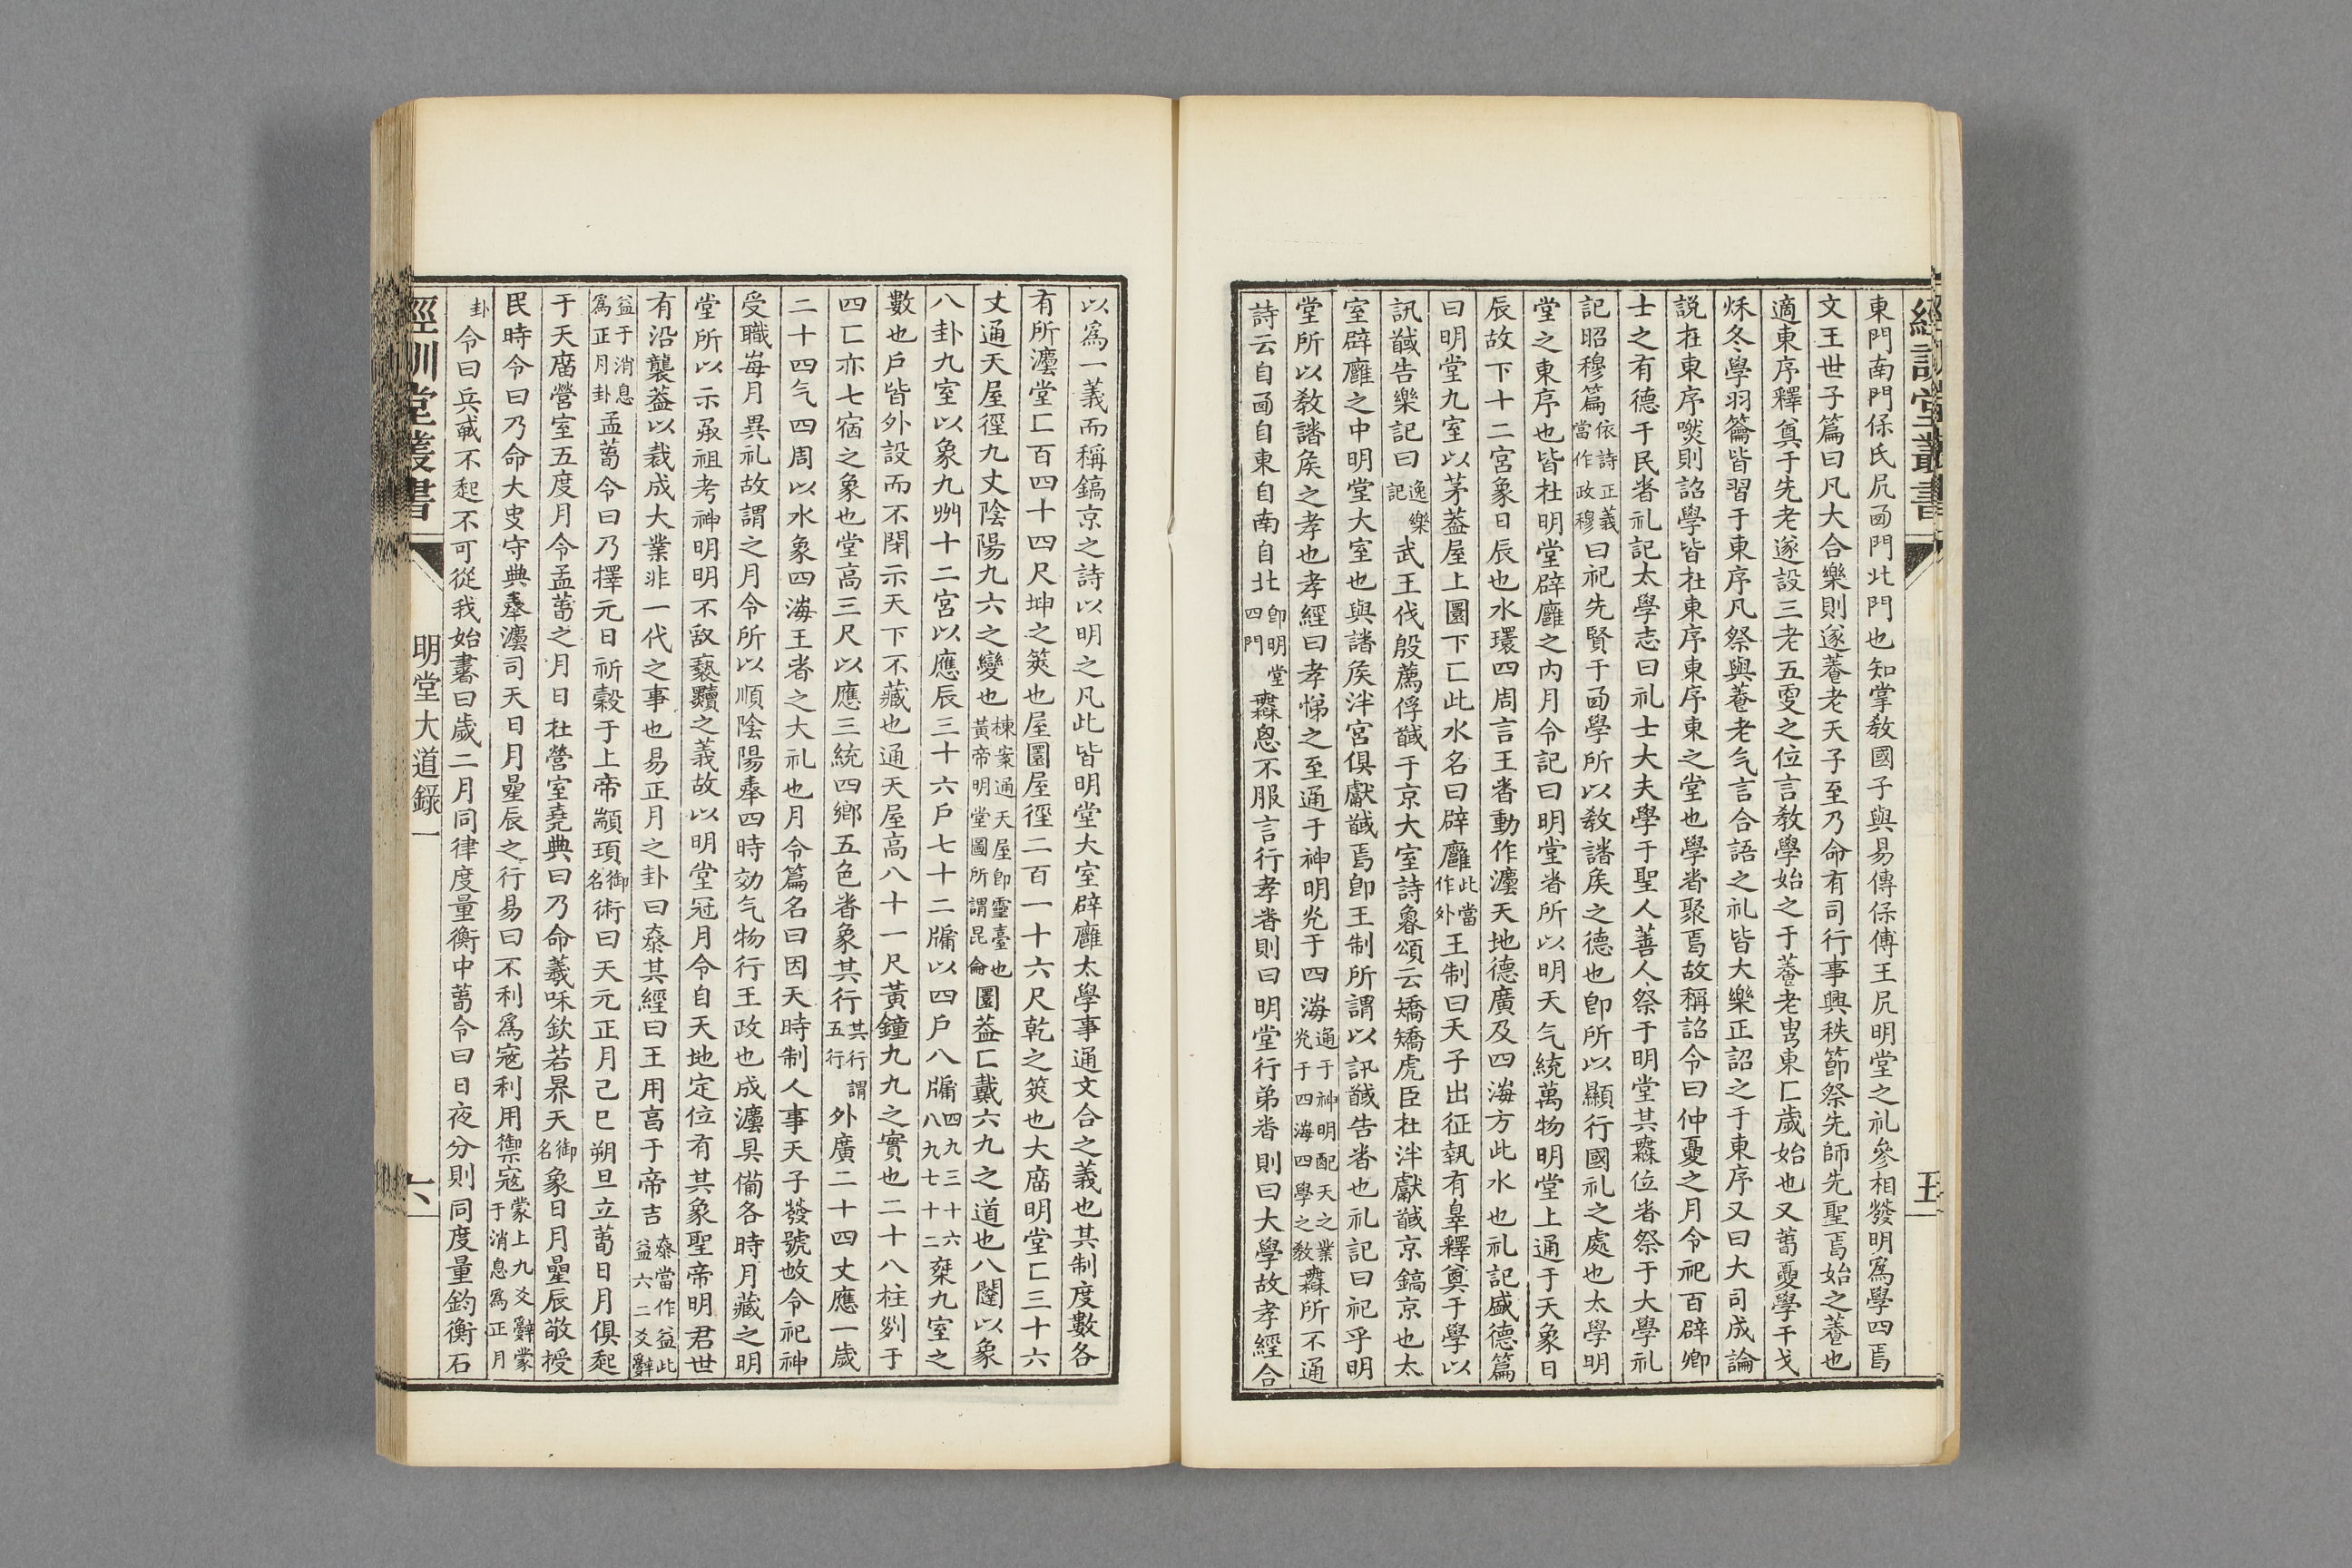 經訓堂叢書
五
東門南門保氏凥西門北門也知掌敎國子與易傳保傅王凥明堂之礼參相發明爲學四焉
文王世子篇曰凡大合樂則遂養老天子至乃命有司行事興秩節祭先師先聖焉始之養也
適東序釋奠于先老遂設三老五叟之位言敎學始之于養老由東匚歲始也又萅夏學干戈
秌冬學羽籥皆習于東序凡祭與養老气言合語之礼皆大樂正詔之于東序又曰大司成論
説在東序然則詔學皆在東序東序東之堂也學者聚焉故稱詔令曰仲夏之月令祀百辟卿
士之有德于民者礼記太學志曰礼士大夫學于聖人善人祭于明堂其無位者祭于大學礼
記昭穆篇依詩正義當作政穆曰祀先賢于西學所以敎諸矦之德也卽所以顯行國礼之處也太學明
堂之東序也皆在明堂辟廱之内月令記曰明堂者所以明天气統萬物明堂上通于天象日
辰故下十二宮象日辰也水環四周言王者動作灋天地德廣及四海方此水也礼記盛德篇
曰明堂九室以茅葢屋上圜下匚此水名曰辟廱此當作外王制曰天子出征執有辠釋奠于學以
訊馘告樂記曰逸樂記武王伐殷薦俘馘于京大室詩魯頌云矯矯虎臣在泮獻馘京鎬京也太
室辟廱之中明堂大室也與諸矦泮宮俱獻馘焉卽王制所謂以訊馘告者也礼記曰祀乎明
堂所以敎諸矦之孝也孝經曰孝悌之至通于神明光于四海通于神明配天之業光于四海四學之敎無所不通
詩云自西自東自南自北卽明堂四門無思不服言行孝者則曰明堂行弟者則曰大學故孝經合
以爲一義而稱鎬京之詩以明之凡此皆明堂大室辟廱太學事通文合之義也其制度數各
有所灋堂匚百四十四尺坤之筴也屋圜屋徑二百一十六尺乾之筴也大廟明堂匚三十六
丈通天屋徑九丈陰陽九六之變也棟案通天屋卽靈臺也黃帝明堂圖所謂昆侖圜葢匚戴六九之道也八闥以象
八卦九室以象九州十二宮以應辰三十六戶七十二牖以四戶八牖四九三十六八九七十二椉九室之
數也戶皆外設而不閉示天下不藏也通天屋高八十一尺黃鐘九九之實也二十八柱列于
四匚亦七宿之象也堂高三尺以應三統四鄉五色者象其行其行謂五行外廣二十四丈應一歲
二十四气四周以水象四海王者之大礼也月令篇名曰因天時制人事天子發號攽令祀神
受職每月異礼故謂之月令所以順陰陽奉四時効气物行王政也成灋具備各時月藏之明
堂所以示承祖考神明明不敢褻黷之義故以明堂冠月令自天地定位有其象聖帝明君世
有沿襲葢以裁成大業非一代之事也易正月之卦曰泰其經曰王用亯于帝吉泰當作益此益六二爻辭
益于消息爲正月卦孟萅令曰乃擇元日祈穀于上帝顓頊御名術曰天元正月己巳朔旦立萅日月俱起
于天廟營室五度月令孟萅之月日在營室堯典曰乃命羲咊欽若昦天御名象日月曐辰敬授
民時令曰乃命大史守典奉灋司天日月曐辰之行易曰不利爲寇利用禦寇蒙上九爻辭蒙于消息爲正月
卦令曰兵戎不起不可從我始書曰歲二月同律度量衡中萅令曰日夜分則同度量鈞衡石
經訓堂叢書
明堂大道錄一
六